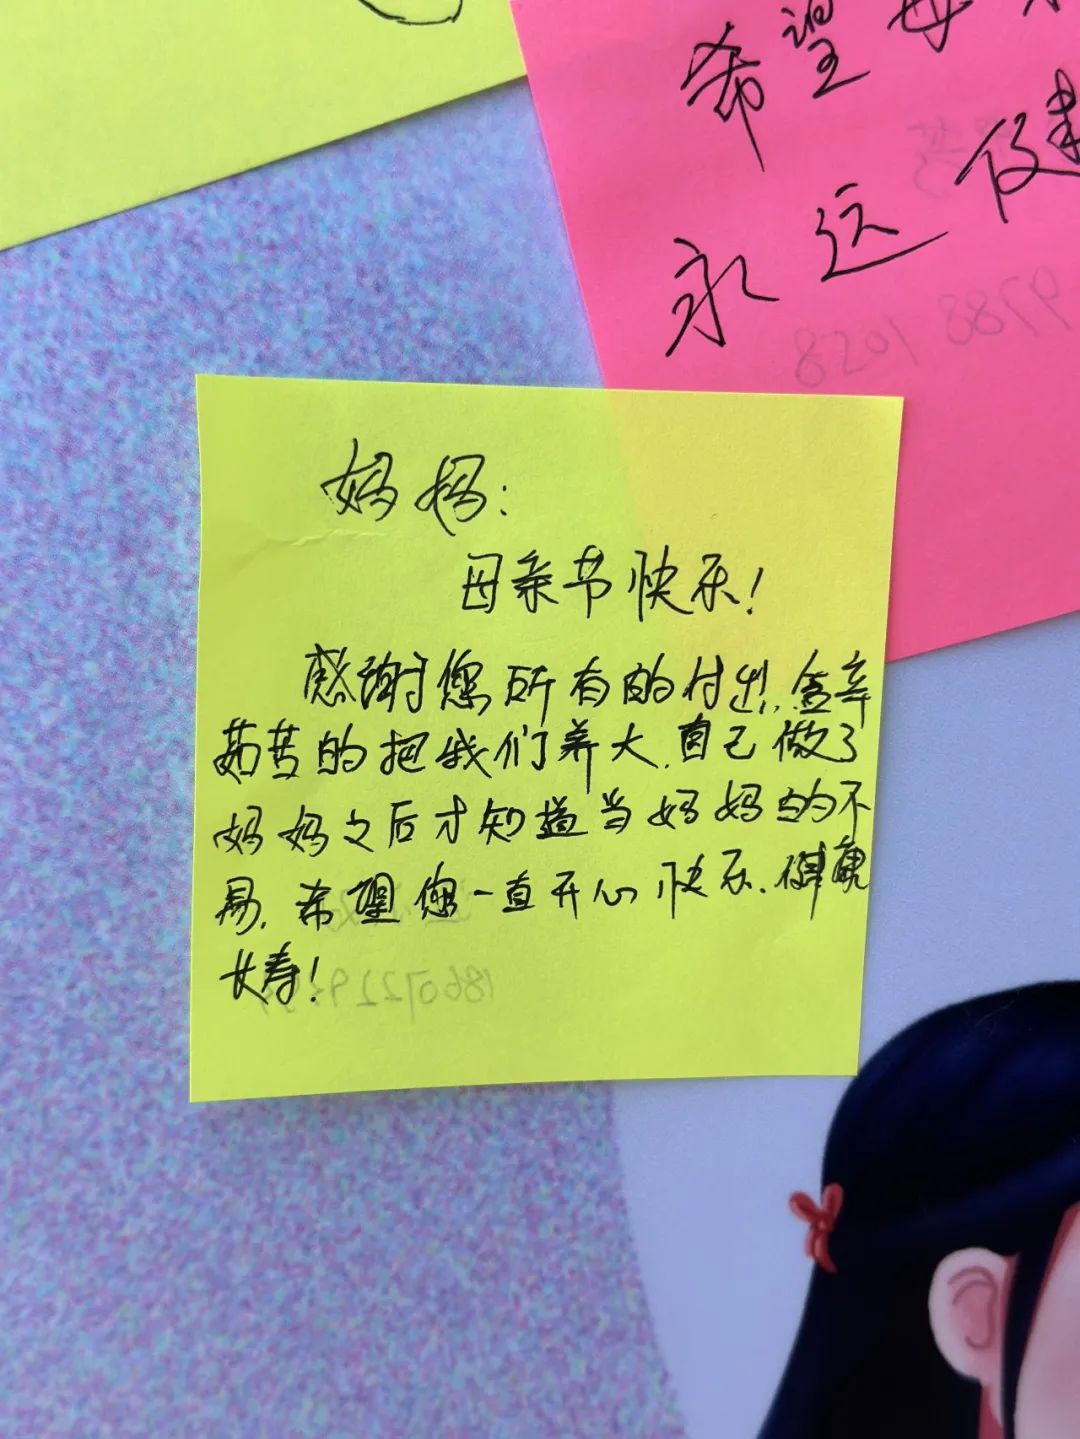 希望母
永远健
8201 8879
妈妈：
母亲节快乐！
感谢您所有的付出，含辛
茹苦的把我们养大，自己做了
妈妈之后才知道当妈妈的不
易，希望您一直开心快乐，健康
长寿！